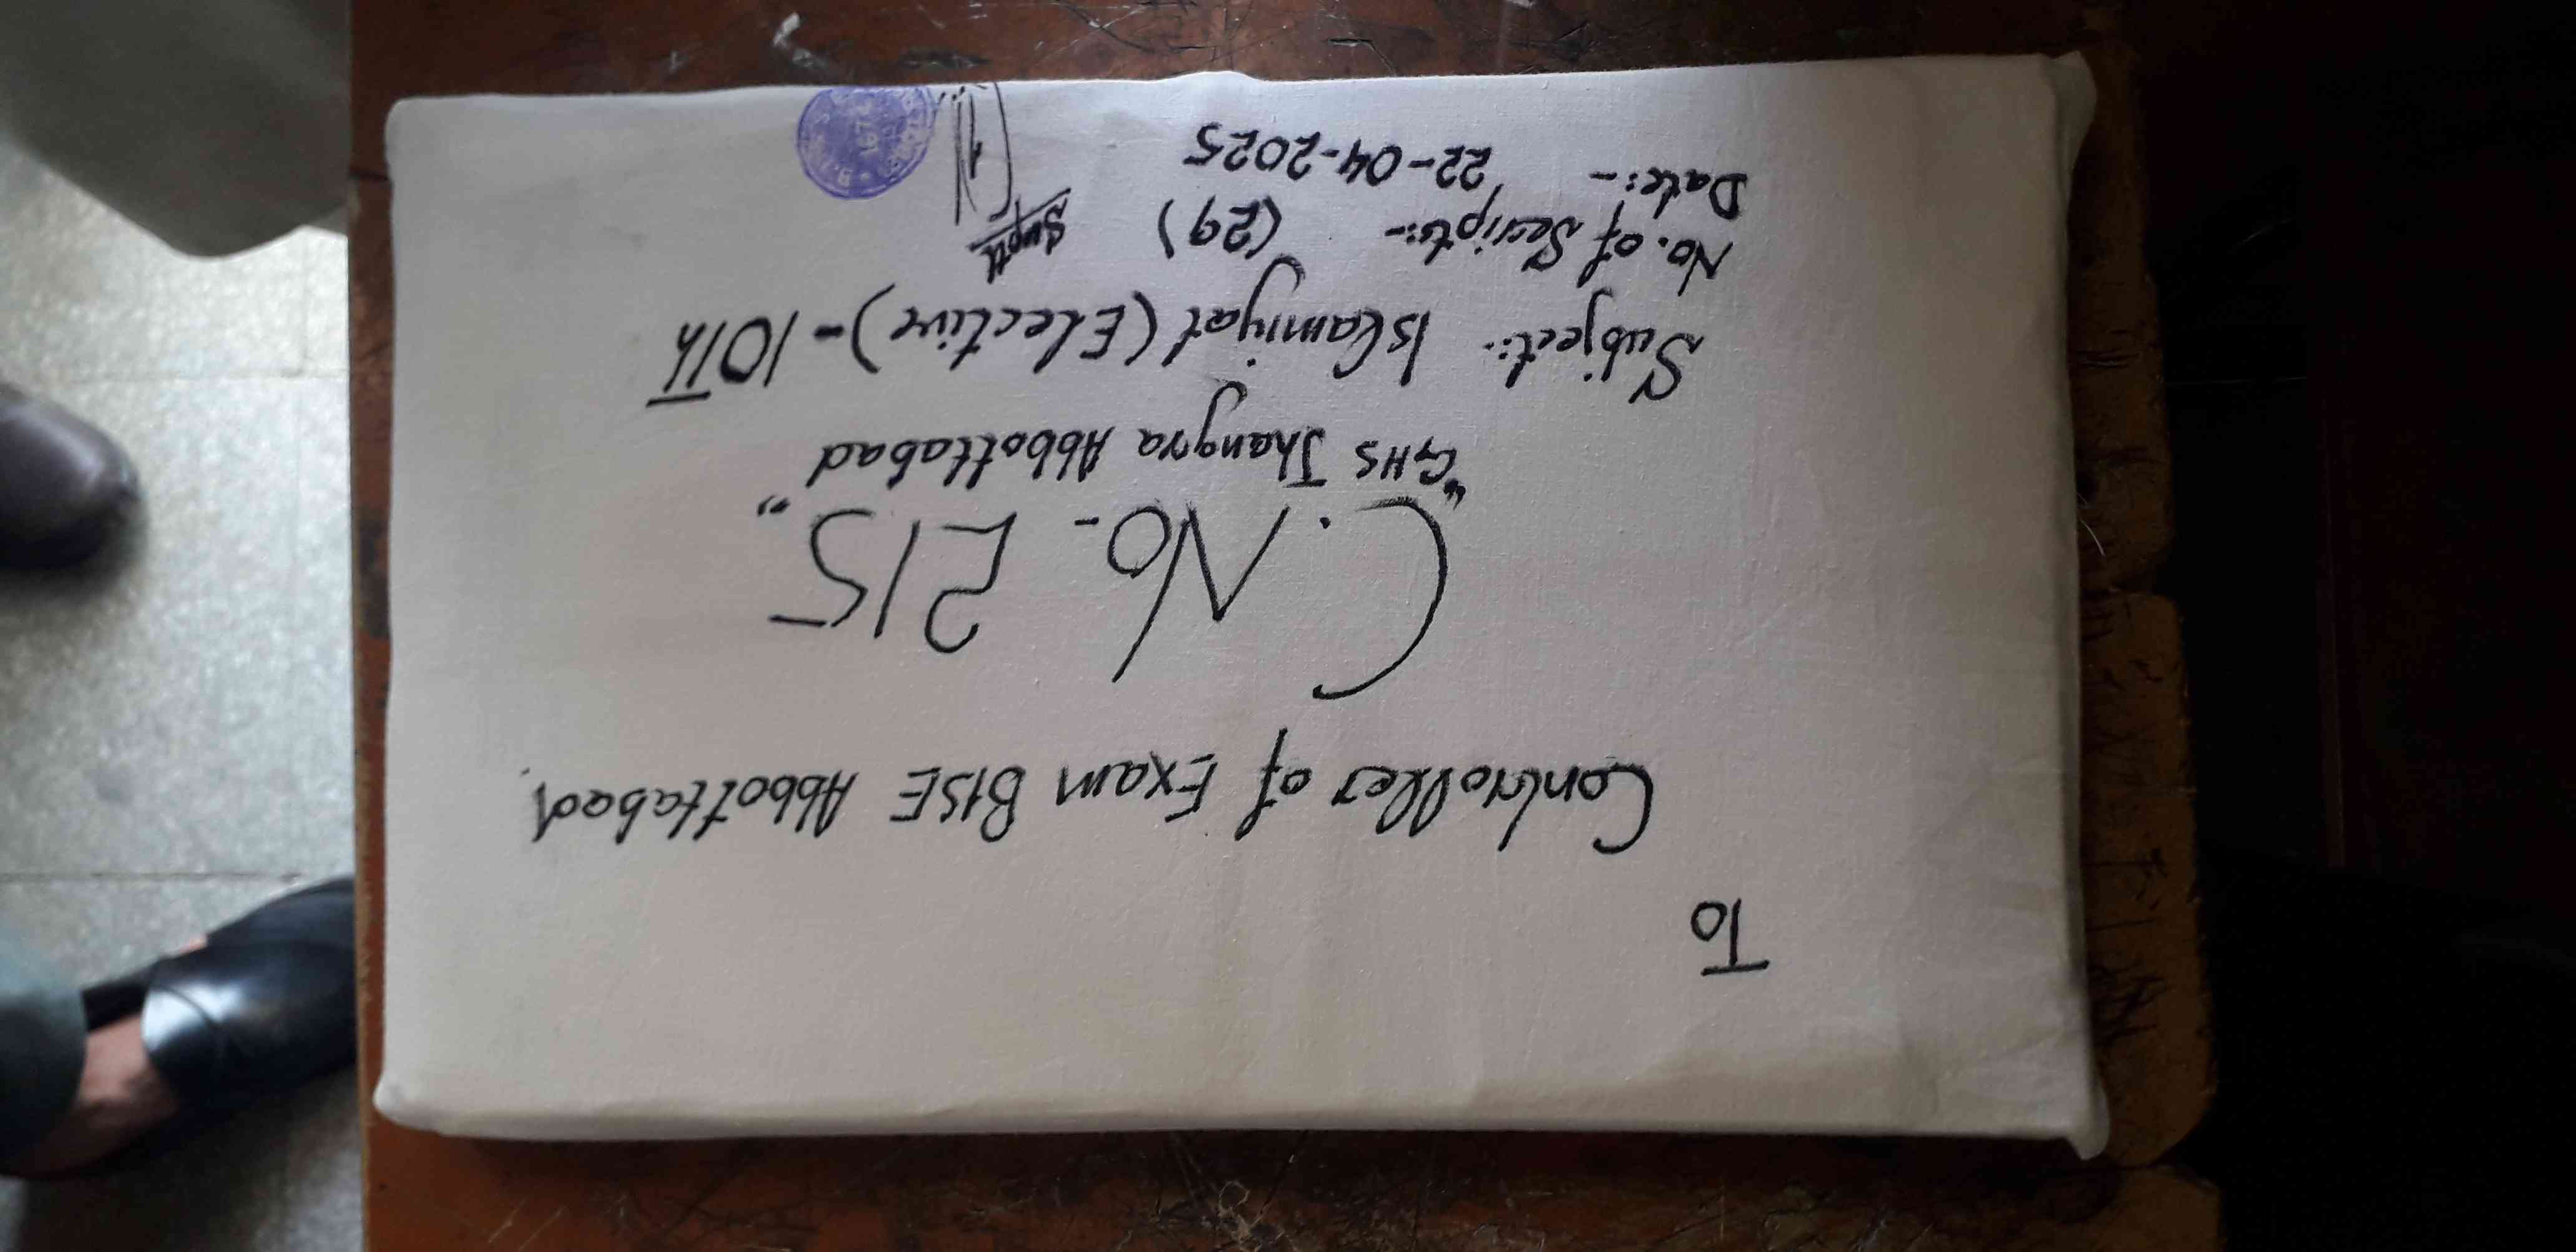 To
Controller of Exam BISE Abbottabad.
C. No. 215"
"GHS Jhangra Abbottabad
Subject:- Islamiyat (Elective) - 10Th
No. of Scripts:- (29)
Date:- 22-04-2025
Supdt